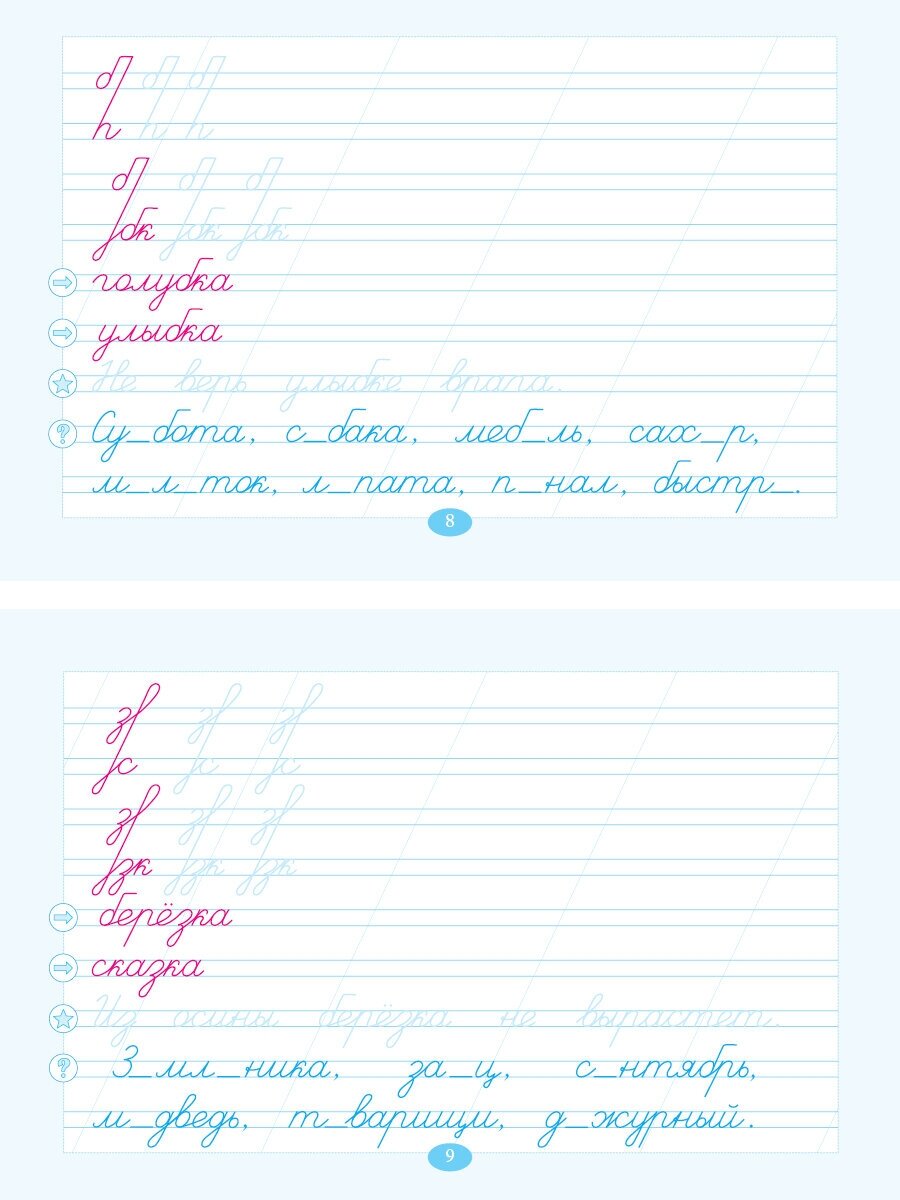 б б б
п п п
б б б
бк бк бк
голубка
улыбка
Не верь улыбке врага.
? Су_бота, с_бака, меб_ль, сах_р,
м_л_ток, л_пата, п_нал, быстр_.
8
з з з
с с с
з з з
зк зк зк
берёзка
сказка
Из осины берёзка не вырастет.
? З_мл_ника, за_ц, с_нтябрь,
м_дведь, т_варищи, д_журный.
9